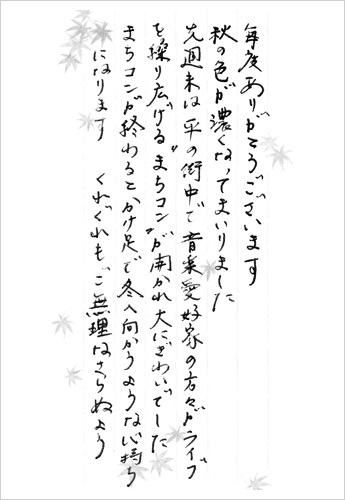 毎度ありがとうございます
秋の色が濃くなってまいりました
先週末は平の街中で音楽愛好家の方々がライブ
を繰り広げる"まちコン"が開かれ大にぎわいでした
まちコンが終わるとかけ足で冬へ向かうような心持ち
になります　くれぐれもご無理なさらぬよう